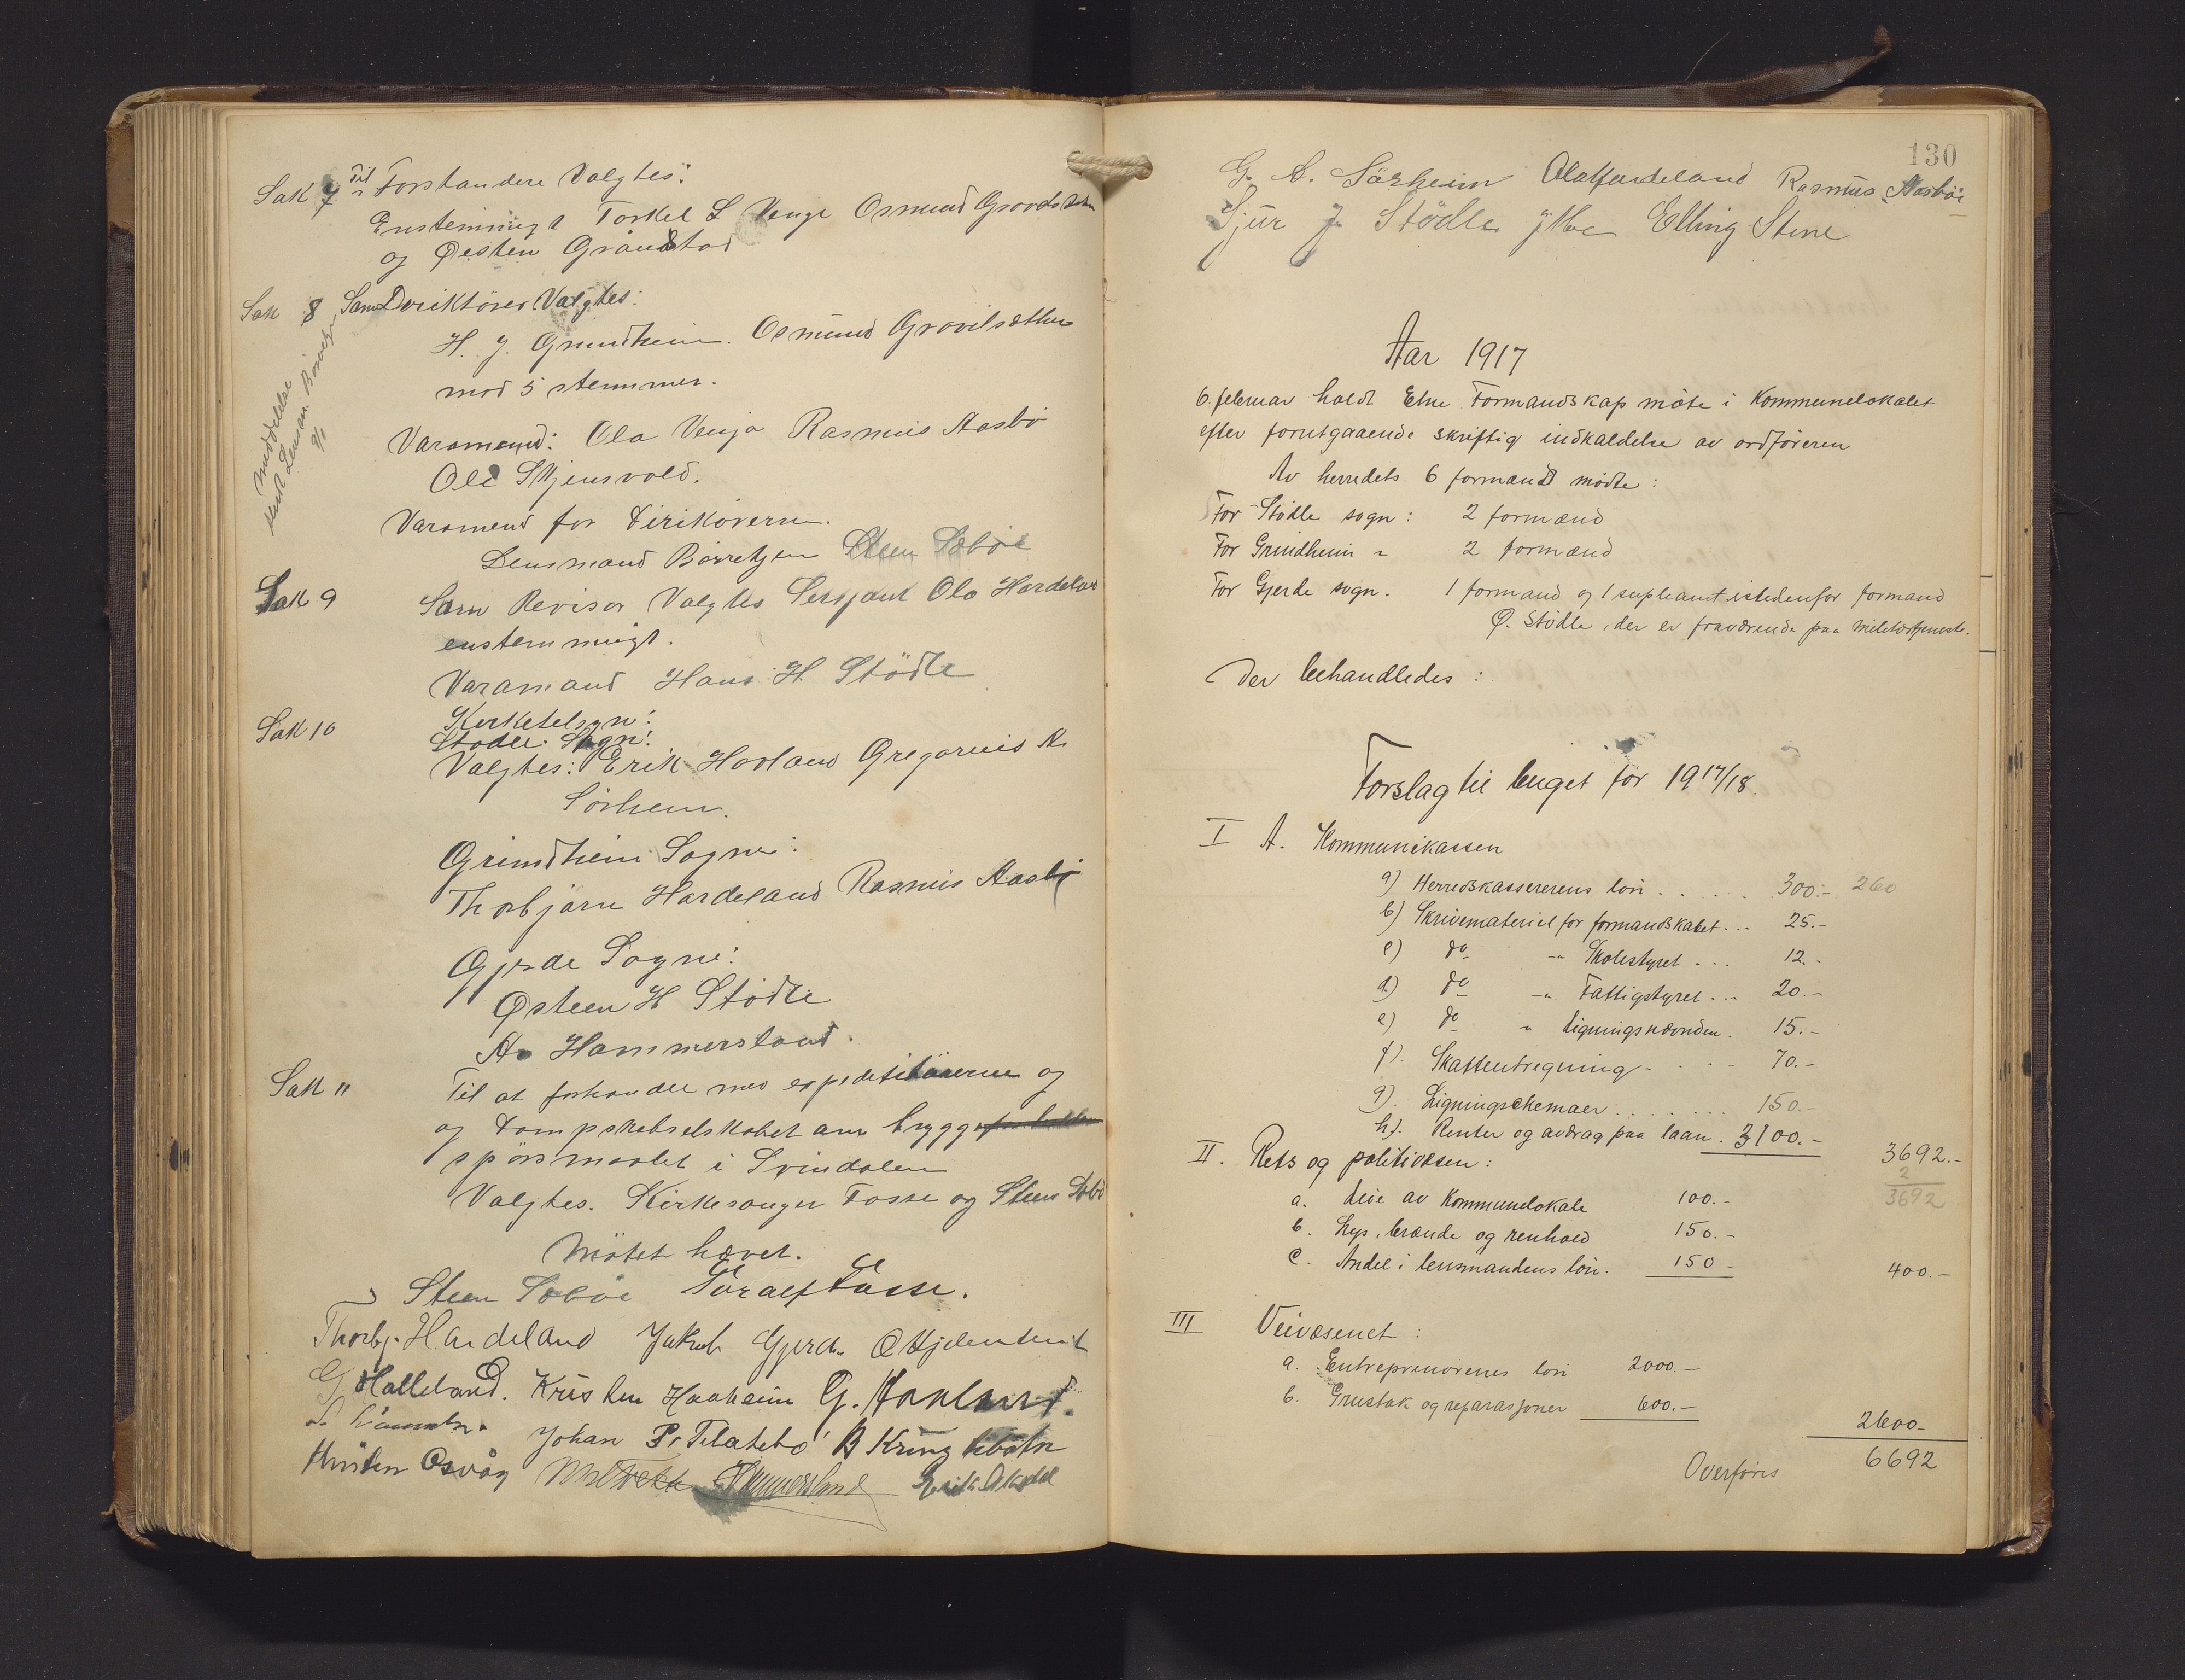 Sak 7 Til Forstandere Valgtes:
Enstemmigt Torkel L Venge Osmund
og Øesten Grånstad
Sak 8 Som Deriktörer Valgtes:
H. J. Grindheim. Osmund Grovilsæther
mod 5 stemmer.
meddelelse
sent Lensm. Börretzen
9/1
Varamænd: Ola Venja Rasmus Aasbö
Ole Skjensvold.
Varamend for Dirikörerne.
Lensmand Börretzen Steen Sæböe
Sak 9 Som Revisor Valgtes Sersjant Ola Hardeland
enstemmigt.
Varamand Hans H. Stödle
Sak 10 Kirketelsyn:
Stødle Sogn:
Valgtes: Erik Havland Gregorius A.
Sörheim.
Grindheim Sogne:
Thorbjörn Hardeland Rasmus Aasbö
Gjerde Sogne:
Østeen H Stödle
A. Hammersland.
Sak 11 Til at forhandle med expeditörerne og
og Dampskebselskabet om brygge
spörsmaalet i Svindalen
Valgtes. Kirkesanger Fosse og Steen Sæbö
Mötet hævet.
Steen Sæböe Toralf Fosse.
Thorbj. Hardeland Jakob Gjerde
G Halleland. Kristen Haaheim G.
Johan P. B Kring
Osvåg Erik
130
G. A. Särheim Ola Hardeland Rasmus Aasböe
Sjur J. Stödle Elling Stene
Aar 1917
6. februar holdt Etne Formandskap möte i Kommunelokalet
efter forutgaaende skriftig indkaldelse av ordföreren
Av herredets 6 formænd mödte:
For Stödle sogn: 2 formænd
For Grindheim " 2 formænd
For Gjerde sogn. 1 formand og 1 supleant istedenfor formand
Ø. Stödle, der er fraværende paa militærtjeneste.
Der behandledes:
Forslag til buget for 1917/18.
I A. Kommunekassen
a) Herredskassererens lön . . . . . 300.- 260
b) Skrivemateriel for formandskabet . . . 25.-
c) do -"- Skolestyret . . . 12.-
d) do -"- Fattigstyret . . . 20.-
e) do " Ligningsnævnden . 15.-
f). Skatteutregning . . . . 70.-
g). Ligningsskemaer . . . . . . . 150.-
h). Renter og avdrag paa laan . 3100.- 3692.-
2
3692
II. Rets og politivæsen:
a. Leie av Kommunelokale 100.-
b. Lys, brænde og renhold 150.-
c. Andel i lensmandens lön. 150 - 400.-
III Veivæsenet:
a. Entreprenörenes lön 2000.-
b. Grustak og reparasjoner 600.- 2600-
Overföres 6692